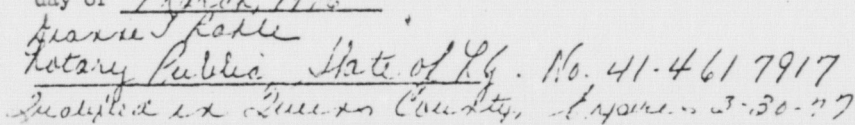 day of March, 19
Notary Public, State of N.Y. No. 41-4617917
Qualified in Queens County, Expires 3-30-77